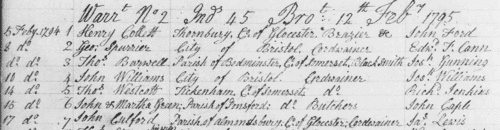 Warrt. No 2 Ind 45 Brot. 12th Feby 1795
5 Feby. 1794 1 Henry Collett Thornbury, C. of Glocester Brazier &c John Ford
8 do 2 Geo: Spurrier City of Bristol Cordwainer Edwd. F. Cann
do do 3 Thos. Barwell Parish of Bedminster, C. of Somerset, Black Smith Jos: Gunning
10 do 4 John Williams City of Bristol Cordwainer Jos: Williams
14 do 5 Thos. Westcott Tickenham, C. of Somerset, do Richd. Jenkins
16 do 6 John & Martha Green, Parish of do Butchers John Caple
17 do 7 John Parish of Almondsbury, C. of Glocester, Cordwainer Jas. Lewis